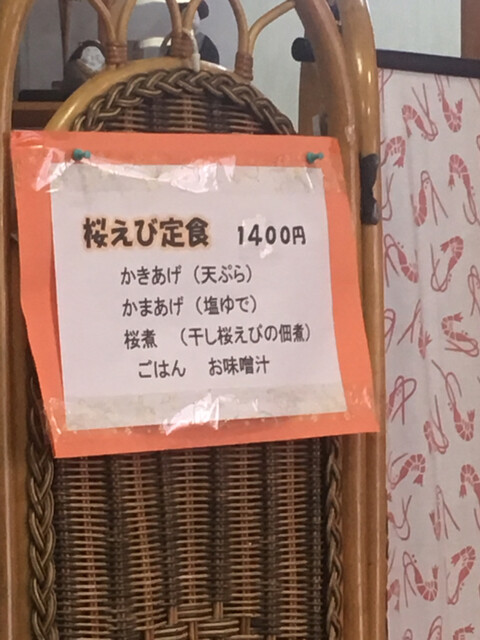 桜えび定食 1400円
かきあげ（天ぷら）
かまあげ（塩ゆで）
桜煮 （干し桜えびの佃煮）
ごはん お味噌汁